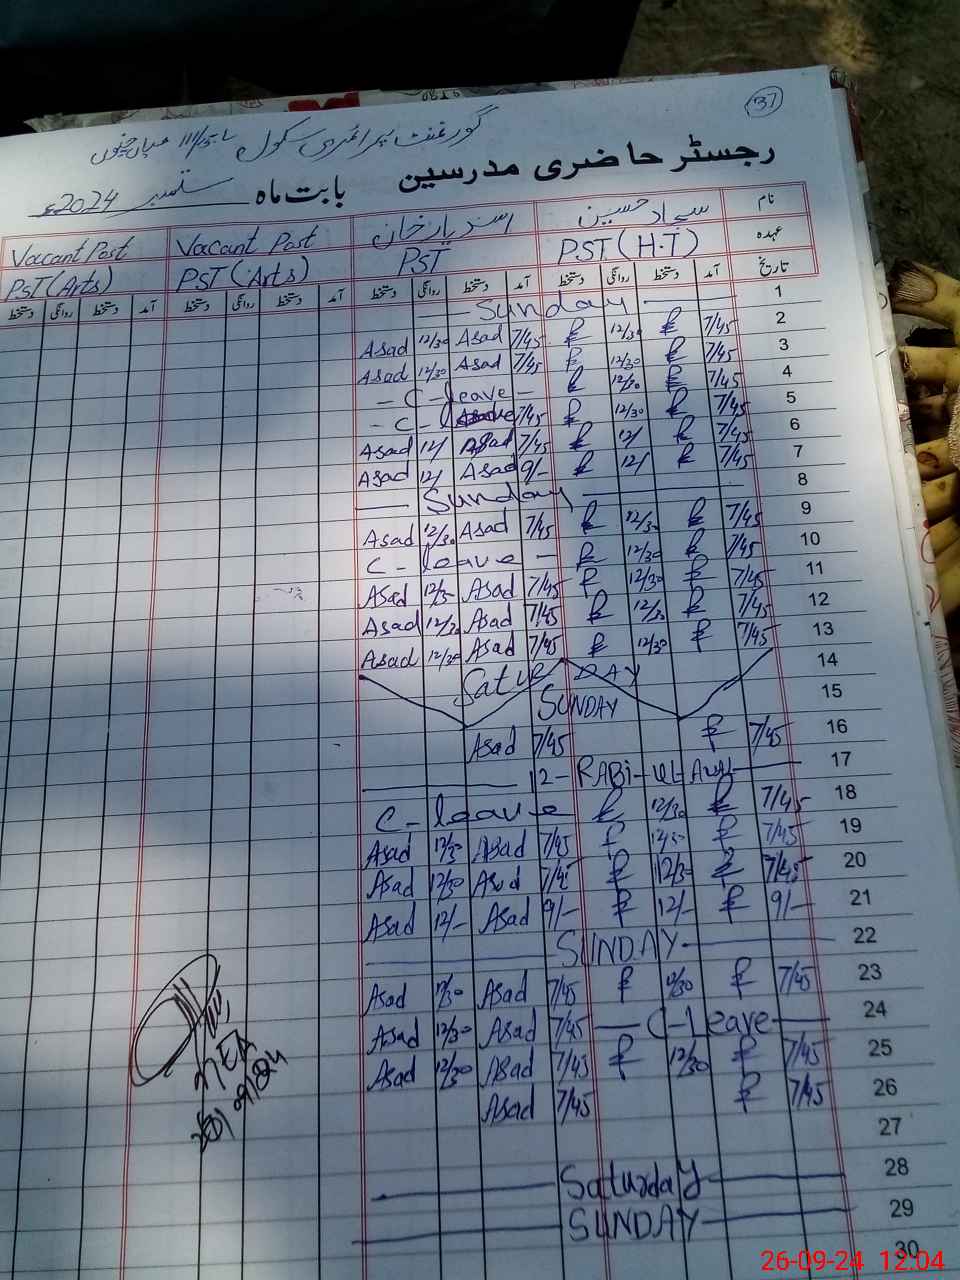 37
گورنمنٹ پرائمری سکول 111/15ایل میاں چنوں
رجسٹر حاضری مدرسین بابت ماہ ستمبر 2024ء
نام سجاد حسین اسند یار خان Vacant Post Vacant Post
عہدہ PST (H.T) PST PST (Arts) PST (Arts)
تاریخ آمد دستخط روانگی دستخط آمد دستخط روانگی دستخط آمد دستخط روانگی دستخط آمد دستخط روانگی دستخط
Sunday 1
Asad 12/30 Asad 7/45 12/30 7/45 2
Asad 12/30 Asad 7/45 12/30 7/45 3
- C - leave - 12/30 7/45 4
- C - 7/45 12/30 7/45 5
Asad 12/ Asad 7/45 12/ 7/45 6
Asad 12/ Asad 9/- 12/ 7/45 7
Sunday 8
Asad 12/30 Asad 7/45 12/30 7/45 9
C - leave - 12/30 7/45 10
Asad 12/30 Asad 7/45 12/30 7/45 11
Asad 12/30 Asad 7/45 12/30 7/45 12
Asad 12/30 Asad 7/45 12/30 7/45 13
SATURDAY 14
SUNDAY 15
Asad 7/45 7/45 16
12 - RABi - ul - Awl 17
C - leave 12/30 7/45 18
Asad 12/30 Asad 7/45 12/30 7/45 19
Asad 12/30 Asad 7/45 12/30 7/45 20
Asad 12/- Asad 9/- 12/- 9/- 21
SUNDAY 22
Asad 12/30 Asad 7/45 12/30 7/45 23
Asad 12/30 Asad 7/45 C - Leave 24
Asad 12/30 Asad 7/45 12/30 7/45 25
Asad 7/45 7/45 26
27
Saturday 28
SUNDAY 29
30
MEA
26-09-24 12:04